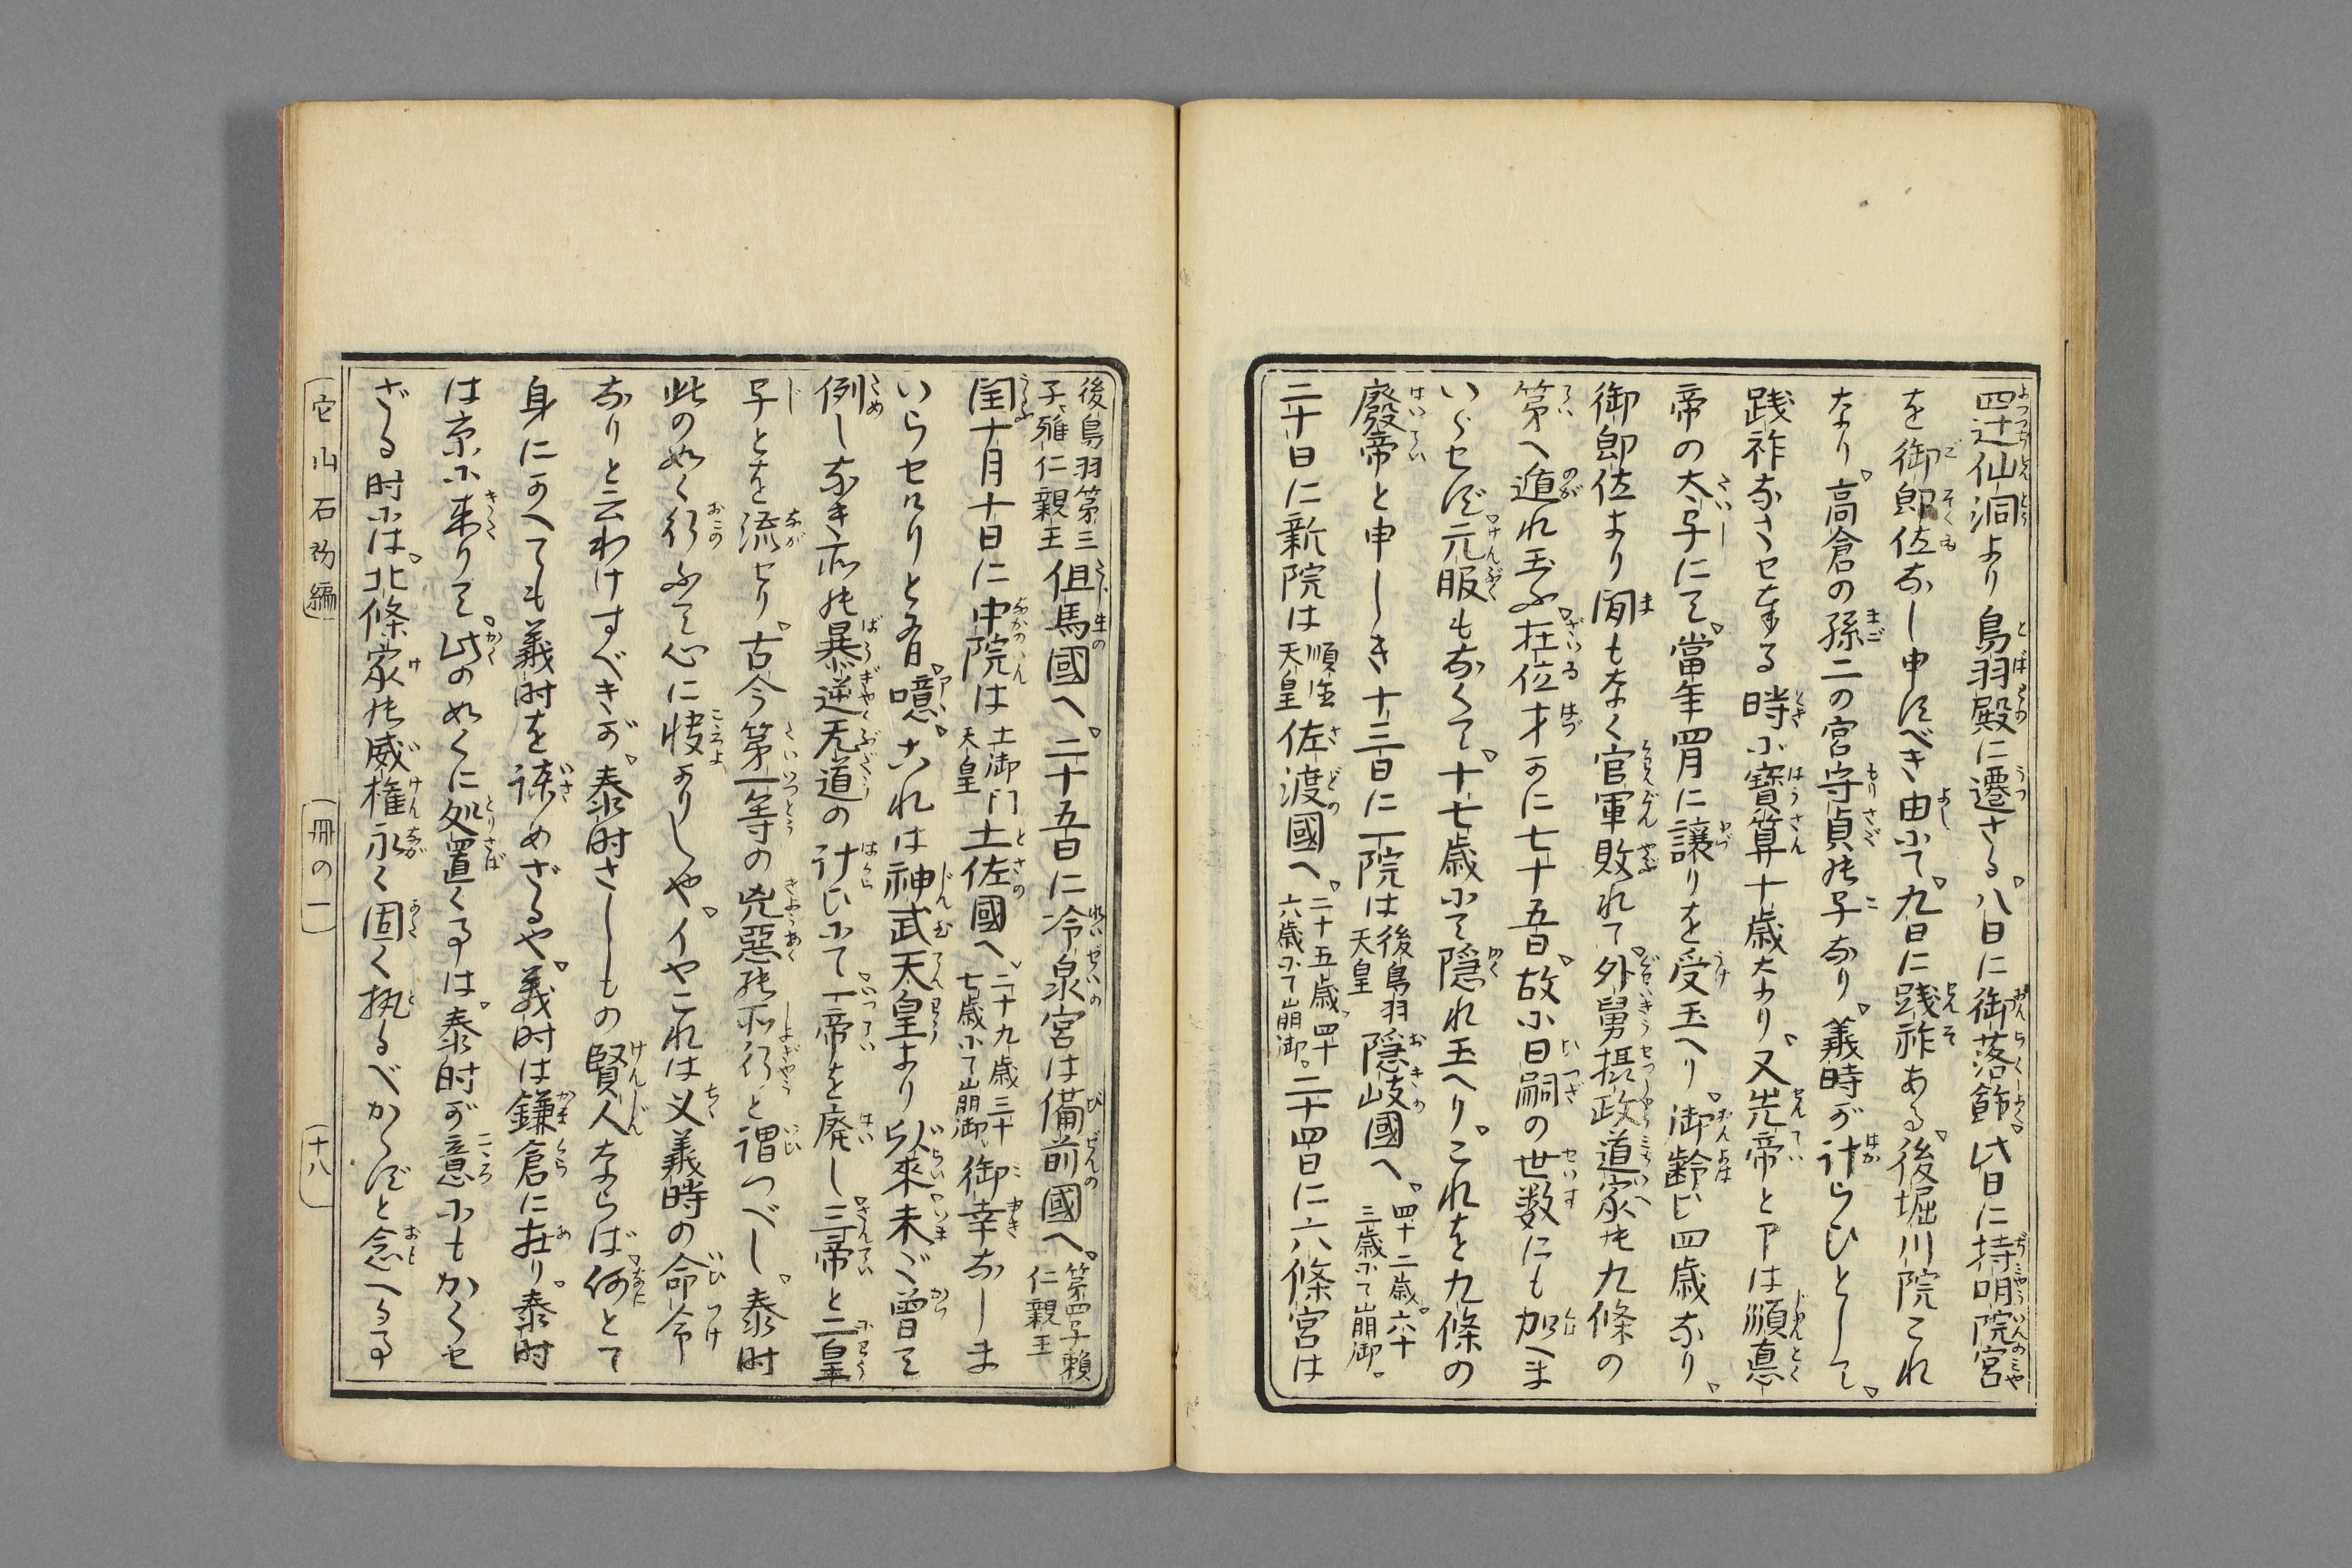 四辻仙洞より鳥羽殿に遷さる。八日に御落飾。此日に持明院宮
を御即位なし申すべき由にて。九日に踐祚ある。後堀川院これ
なり。高倉の孫二の宮守貞の子なり。義時が計らひとして。
践祚なさせ奉る時に寶算十歳なり。又先帝と申は順悳
帝の太子にて。當年四月に譲りを受玉へり。御齢ヒ四歳なり。
御即位より間もなく官軍敗れて。外舅摂政道家の九條の
第へ遁れ玉ふ。在位才かに七十五日。故に日嗣の世数にも加へま
いらせず。元服もなくて。十七歳にて隠れ玉へり。これを九條の
廢帝と申しき十三日に一院は後鳥羽天皇隠岐國へ。四十二歳。六十三歳にて崩御。
二十日に新院は順徳天皇佐渡國へ。二十五歳。四十六歳にて崩御。二十四日に六條宮は
後鳥羽第三子、雅仁親王但馬國へ。二十五日に冷泉宮は備前國へ。第四子頼仁親王
閏十月十日に中院は土御門天皇土佐國へ。二十九歳三十七歳にて崩御、御幸なしま
いらせけりと有。噫。これは神武天皇より以來。未だ曽て
例しなき所の暴逆无道の計ひにて。一帝を廃し。三帝と二皇
子とを流せり。古今第一等の兇惡の所行と謂つべし。泰時
此の如く行ふて心に快よかりしや。イやこれは父義時の命令
なりと云わけすべきが。泰時さしもの賢人ならば。何とて
身にかへても義時を諌めざるや。義時は鎌倉に在り。泰時
は京に来りて。此の如くに処置くる事は。泰時が意にもかくせ
ざる时には。北條家の威権永く固く執るべからずと念へる事
山石初編
冊の一
十八